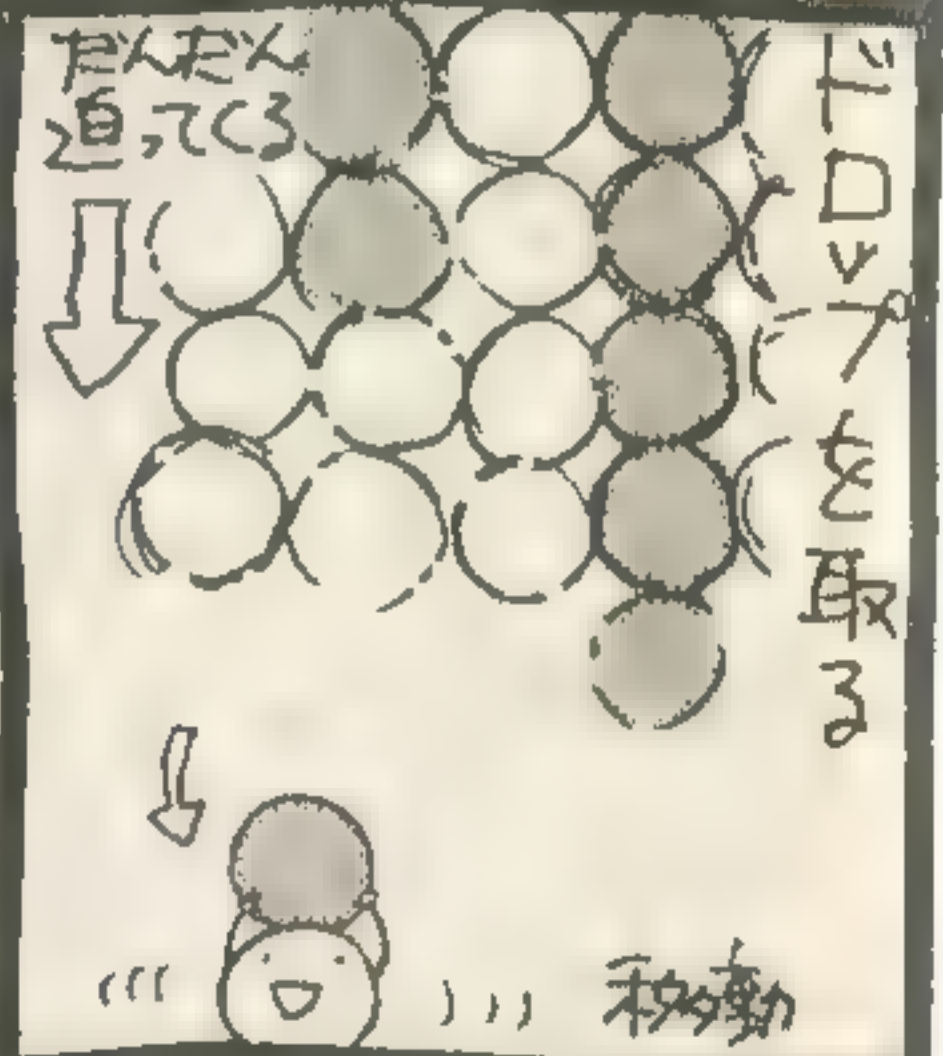 だんだん
迫ってくる
ドロップを取る
移動